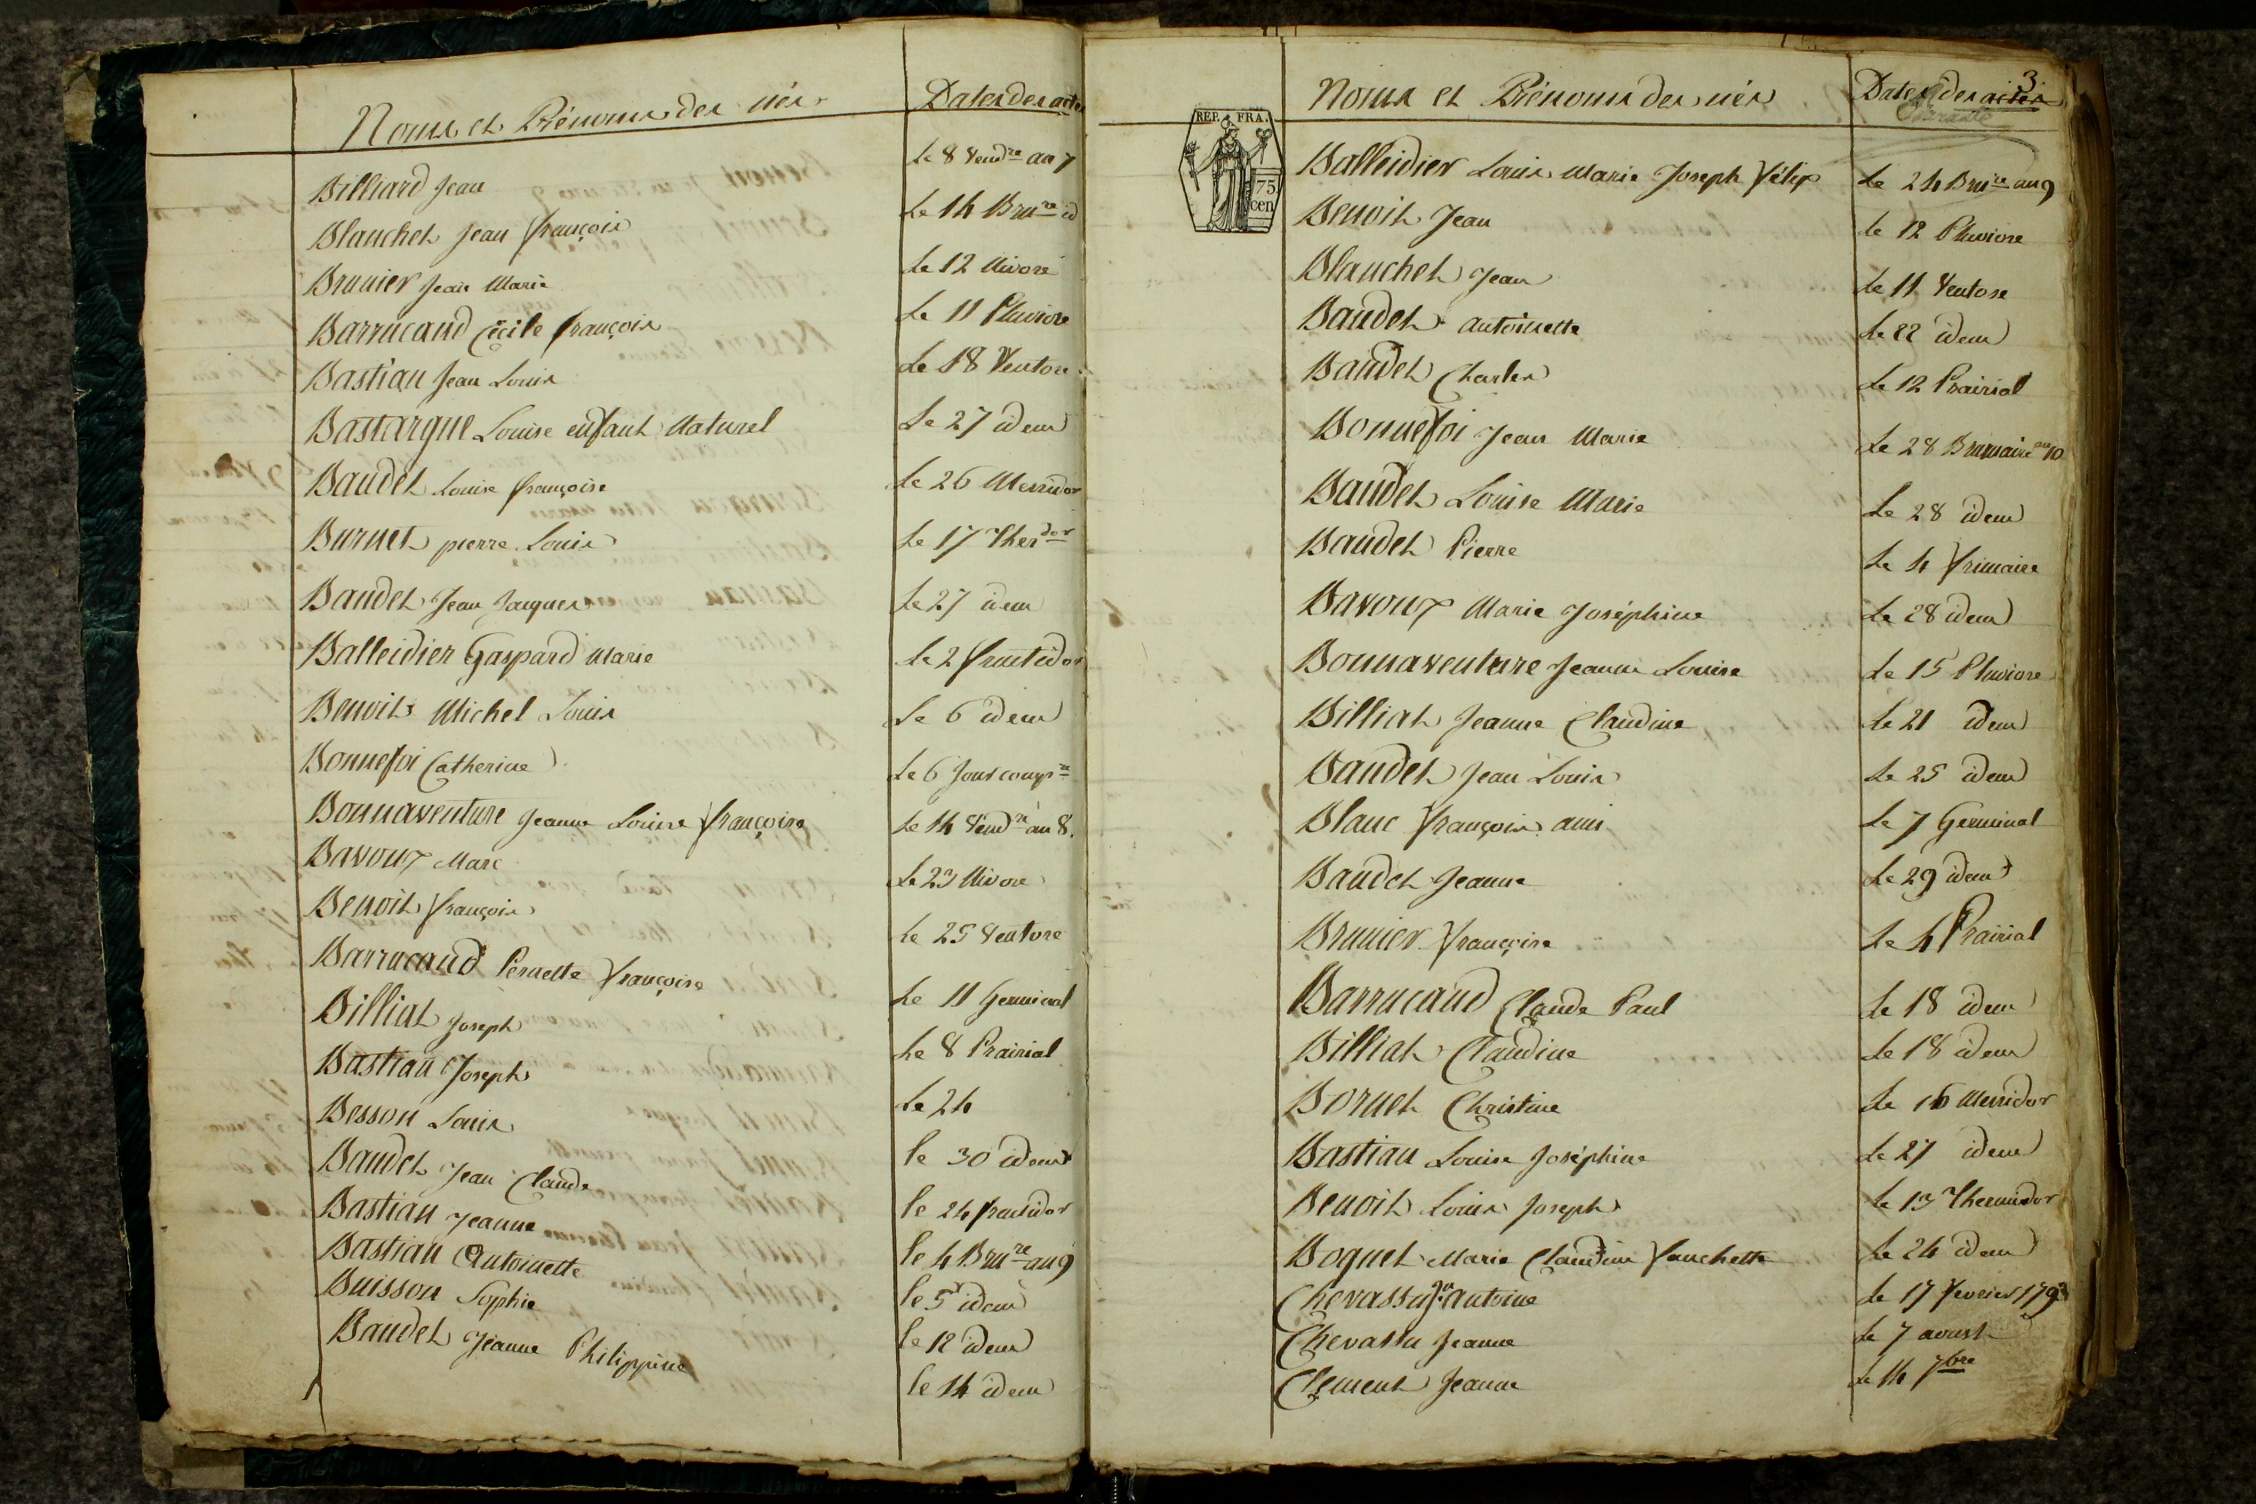 Noms et Prénoms des nés Dates des actes
Billiard Jean Le 8 Vend.re an 7
Blanchet Jean françois Le 14 Bru.re id
Brunier Jean Marie Le 12 Nivose
Barrucand Cécile françois Le 11 Pluviose
Bastian Jean Louis Le 18 Ventose
Bastargue Louise enfant Naturel Le 27 idem
Baudet Louise françoise Le 26 Messidor
Burnet pierre Louis Le 17 Ther.dor
Baudet Jean Jacques Le 27 idem
Balleidier Gaspard Marie Le 2 fructidor
Benoit Michel Louis Le 6 idem
Bonnefoi Catherine Le 6 Jour comp.re
Bonnaventure Jeanne Louise françoise Le 14 Vend.re an 8.
Bavoux Marc Le 23 Nivose
Benoit françois Le 25 Ventose
Barrucand Pernette françoise Le 11 Germinal
Billiat Joseph Le 8 Prairial
Bastian Joseph Le 24
Besson Louis le 30 idem
Baudet Jean Claude le 24 fructidor
Bastian Jeanne le 4 Bru.re an 9
Bastian Antoinette le 5 idem
Buisson Sophie le 12 idem
Baudet Jeanne Philippine le 14 idem
3
Noms et Prénoms des nés Dates des actes
REP. FRA.
75
cen
Balleidier Louis Marie Joseph félix Le 24 Bru.re an 9
Benoit Jean le 12 Pluviose
Blanchet Jean Le 11 Ventose
Baudet antoinette Le 22 idem
Baudet Charles Le 12 Prairial
Bonnefoi Jean Marie Le 28 Brumaire an 10
Baudet Louise Marie Le 28 idem
Baudet Pierre Le 4 frimaire
Bavoux Marie Joséphine Le 28 idem
Bonnaventure Jeanne Louise Le 15 Pluviose
Billiat Jeanne Claudine Le 21 idem
Baudet Jean Louis Le 25 idem
Blanc françois ami Le 7 Germinal
Baudet Jeanne Le 29 idem
Brunier françoise Le 4 Prairial
Barrucand Claude Paul Le 18 idem
Billiat Claudine Le 18 idem
Bornet Christine Le 16 Messidor
Bastian Louise Joséphine Le 27 idem
Benoit Louis Joseph Le 13 Thermidor
Boquet Marie Claudine fanchette Le 24 idem
Chevassu antoine Le 17 fevrier 1793
Chevassu Jeanne Le 7 aoust
Clement Jeanne Le 14 7bre